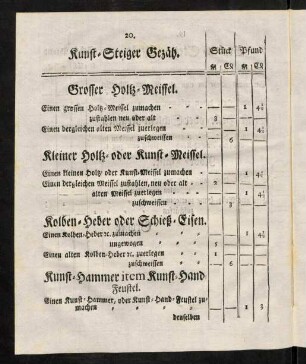 20.
Kunst-Steiger Gezäh.
Stück Pfund
Grosser Holtz-Meissel.
Einen grossen Holtz-Meissel zumachen - - - 1 4½
zustahlen neu oder alt - - 3
Einen dergleichen alten Meissel zuerlegen - - 1 4½
zuschweissen - 6
Kleiner Holtz- oder Kunst-Meissel.
Einen kleinen Holtz- oder Kunst-Meissel zumachen - 1 4½
Einen dergleichen Meissel zustahlen, neu oder alt - 2
alten Meissel zuerlegen - - 1 4½
zuschweissen - - 3
Kolben-Heber oder Schieß-Eisen.
Einen Kolben-Heber ꝛc. zumachen 1 4½
ungewogen 5
Einen alten Kolben-Heber ꝛc. zuerlegen
zuschweissen 6
Kunst-Hammer item Kunst-Hand
Feustel.
Einen Kunst-Hammer, oder Kunst-Hand-Feustel zu-
machen 1 3
denselben